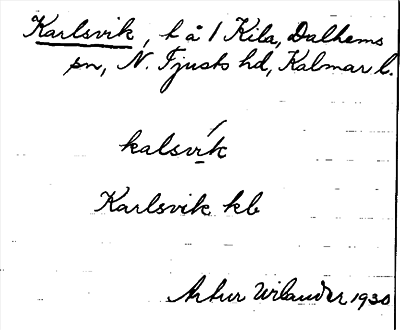 Karlsvik, t å 1 Kila, Dalhems
sn, N. Tjusts hd, Kalmar l.
kalsví̱k
Karlsvik kb
Artur Wilander 1930